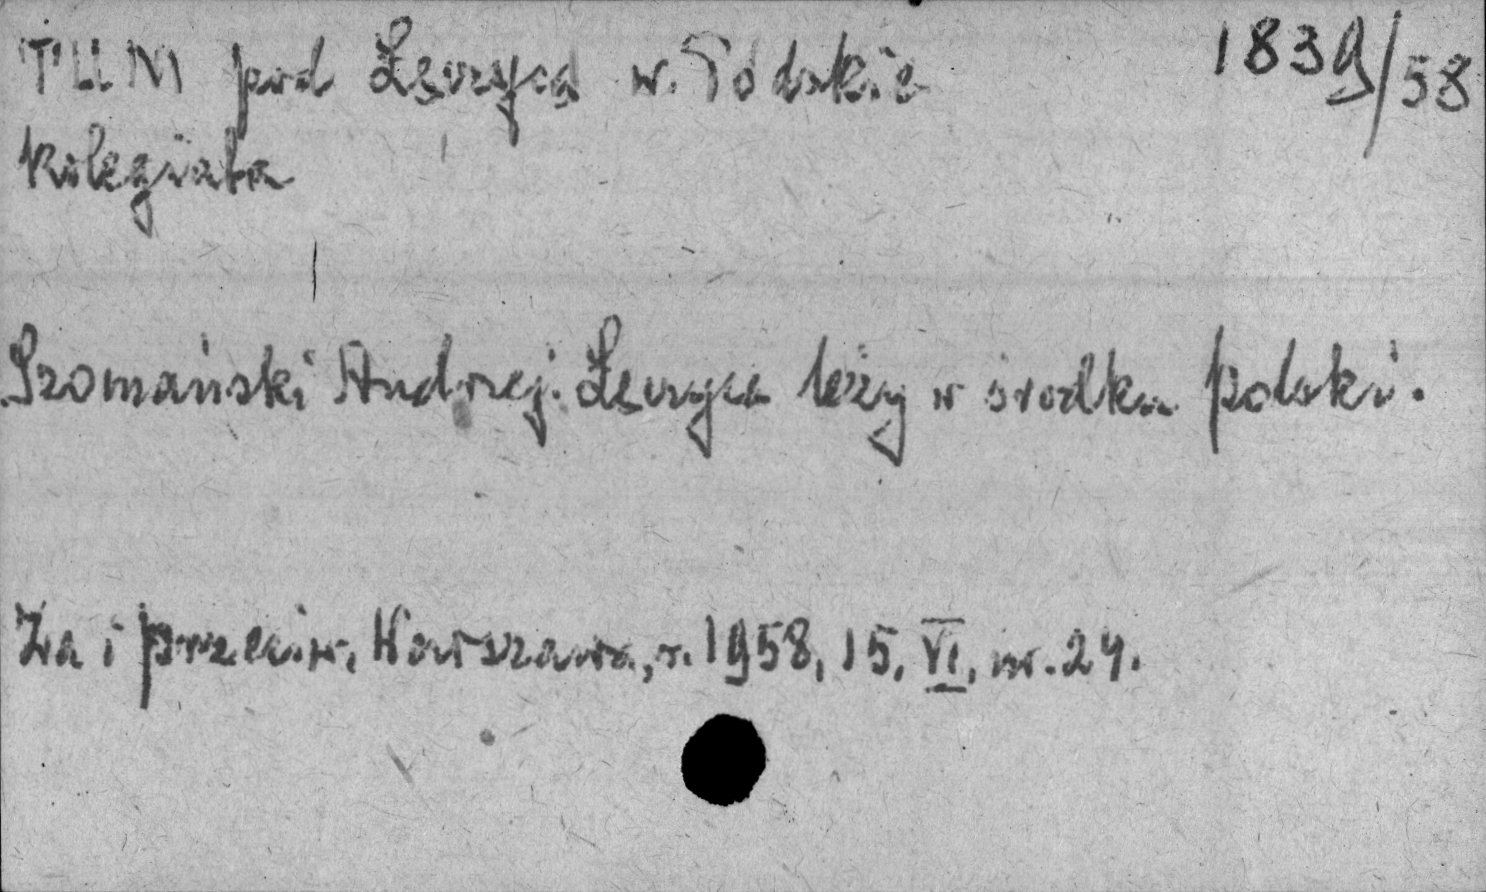 TUM pod Łęczycą w. Łódzkie 1839/58
Kolegiata
Szomański Andrzej. Łęczyca leży w środku Polski.
Za i przeciw. Warszawa, r. 1958, 15. VI, nr. 24.